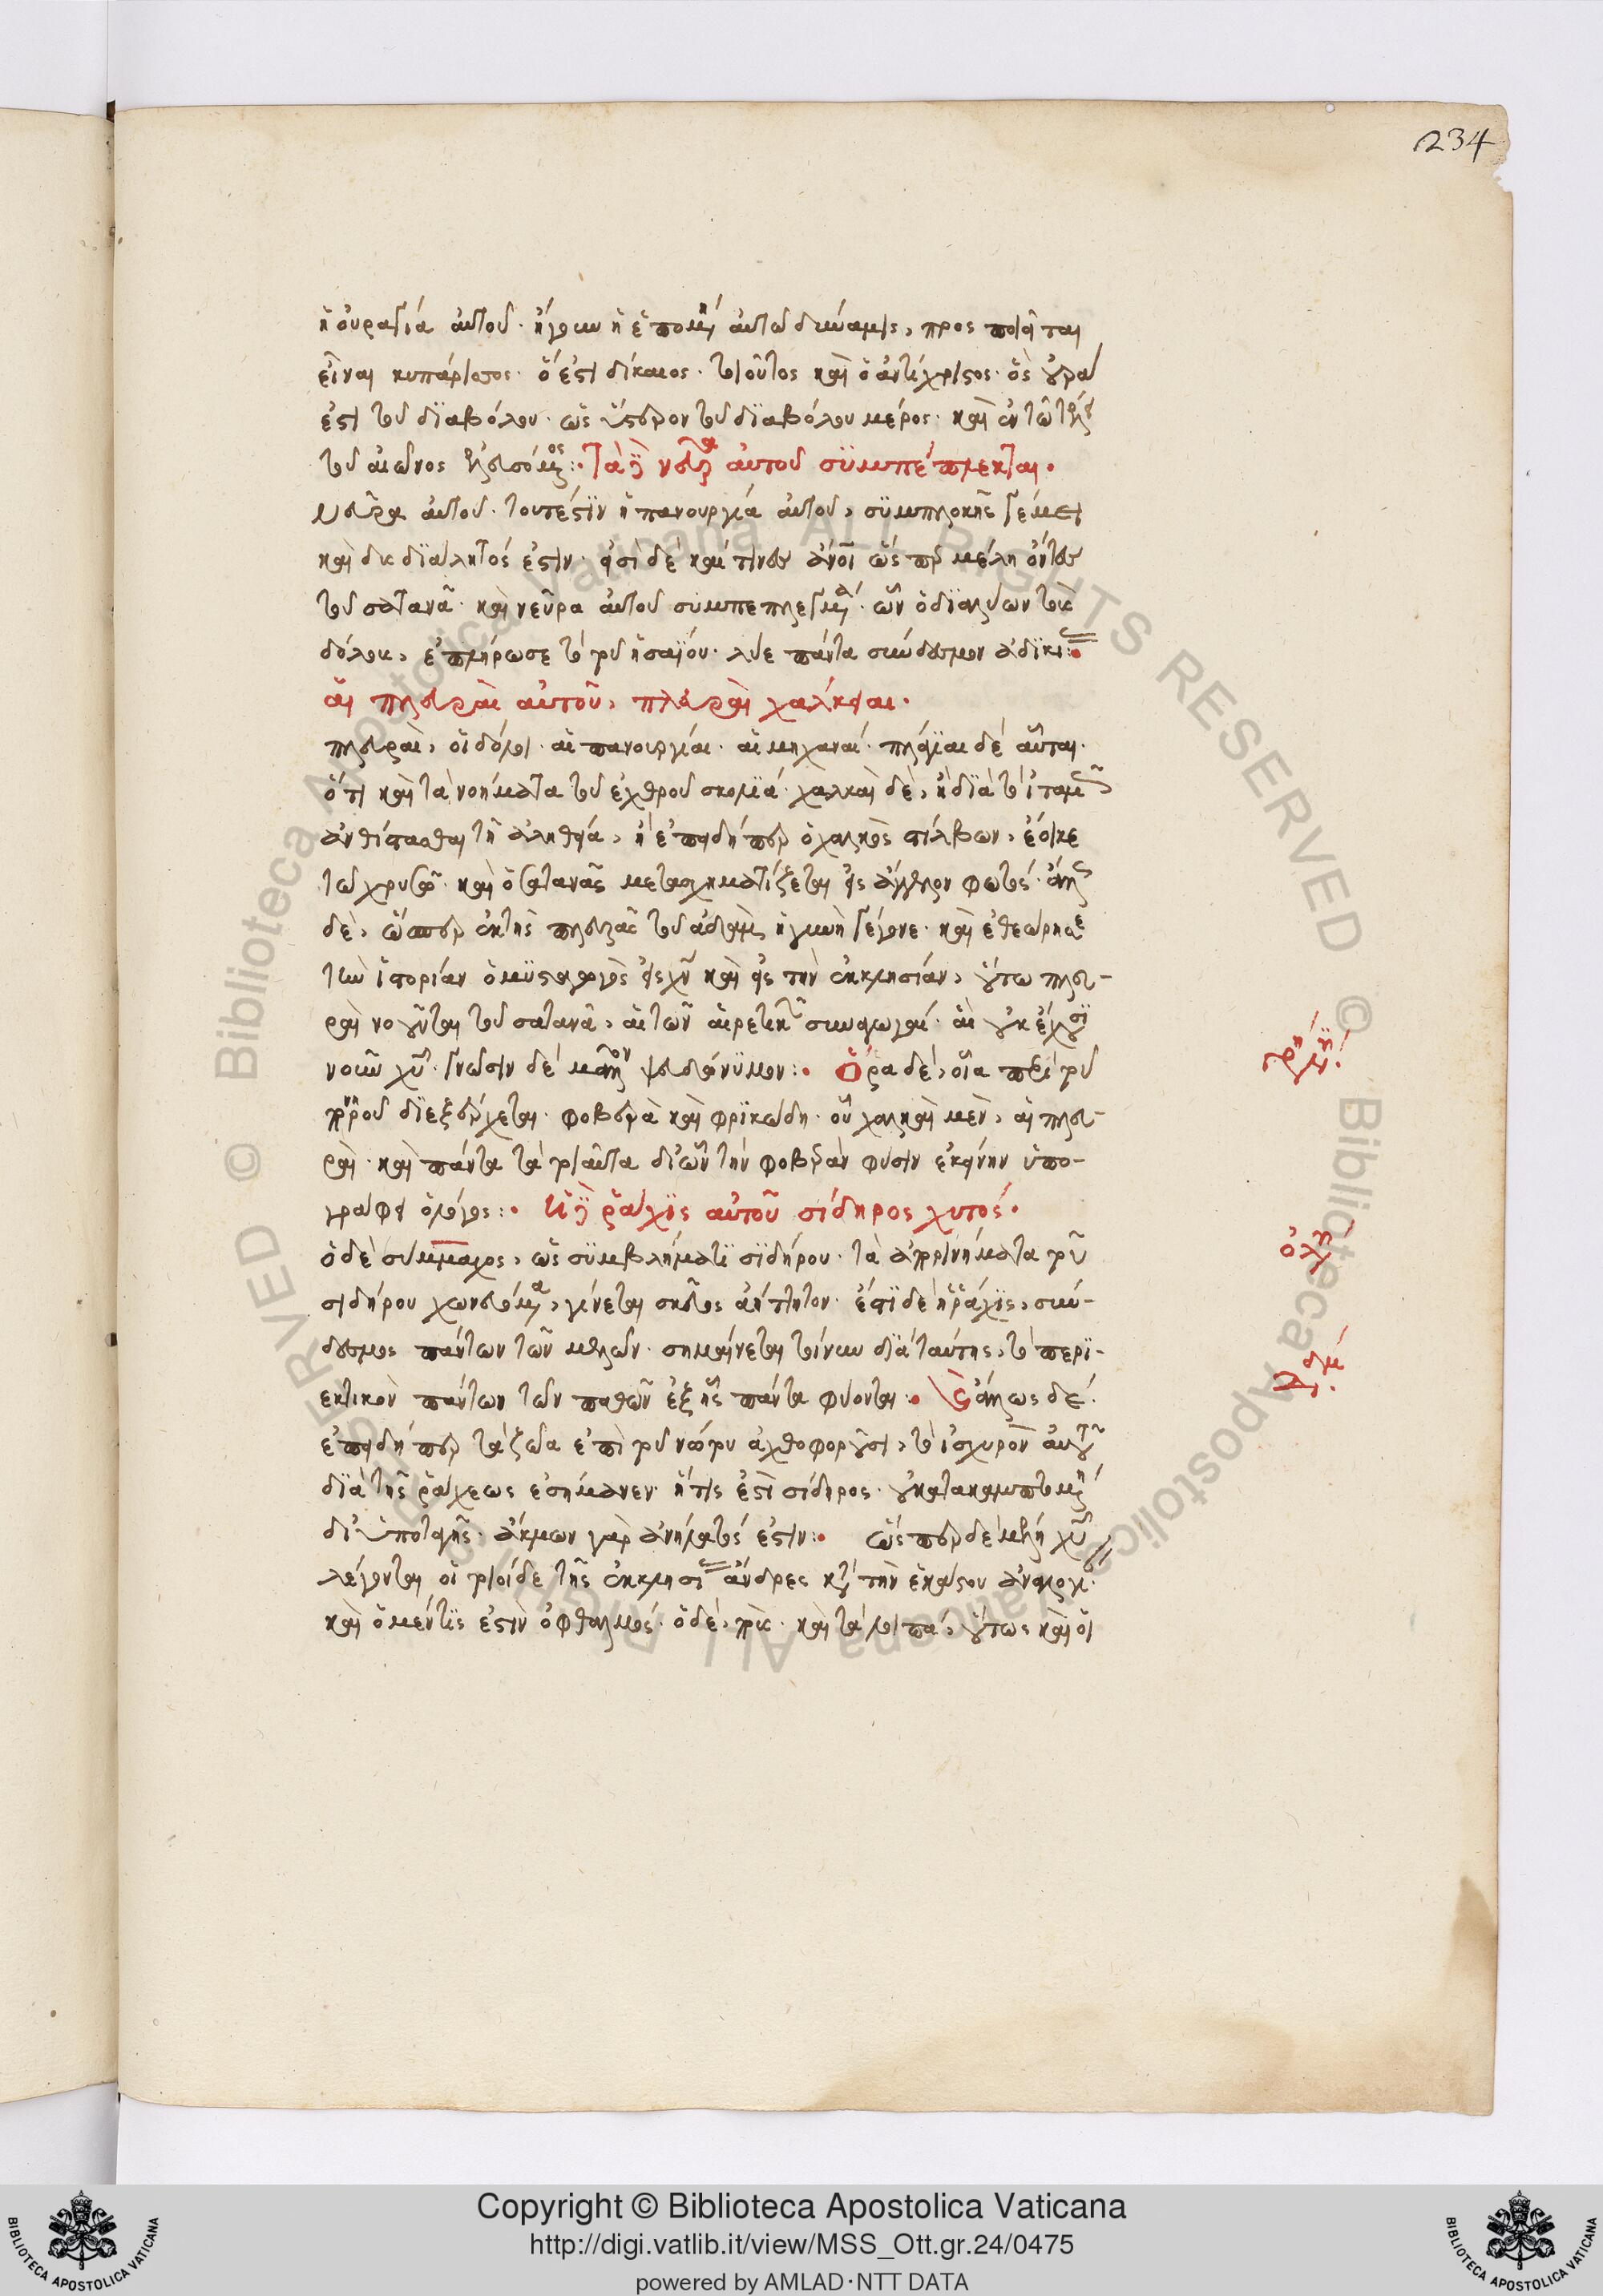 234
ἡ οὐραγία αὐτοῦ· ἤγουν ἡ ἑπομένη αὐτῶ δύναμις, προσποιεῖται
εἶναι κυπάρισσος· ὅ ἐστι δίκαιος· τοιοῦτος καὶ ὁ ἀντίχριστος· ὃς οὐρὰ
ἐστι τοῦ διαβόλου· ὡς ὕστερον τοῦ διαβόλου μέρος· καὶ ἐν τῶ τέλει
τοῦ αἰῶνος
Τὰ δὲ νεῦρα αὐτοῦ συμπέπλεκται·
νεῦρα αὐτοῦ· τουτέστιν ἡ πανουργία αὐτοῦ, συμπλοκῆς γέμει
καὶ δυσδιάλυτός ἐστιν· εἰσὶ δὲ καί τινες ἄνοι ὥσπερ μέλη ὄντες
τοῦ σατανᾶ· καὶ νεῦρα αὐτοῦ συμπεπλεγμένα· ὧν ὁ διαλύων τοὺς
δόλους, ἐπλήρωσε τὸ τοῦ ἡσαΐου· λύε πάντα σύνδεσμον ἀδικίας:
αἱ πλευραὶ αὐτοῦ, πλευραὶ χάλκειαι·
πλευραὶ, οἱ δόλοι· αἱ πανουργίαι· αἱ μηχαναί· πλάγιαι δὲ αὗται·
ὅτι καὶ τὰ νοήματα τοῦ ἐχθροῦ σκολιά· χαλκαῖ δὲ, ἢ διὰ τὸ ἰταμῶς
ἀνθίστασθαι τῆ ἀληθεία, ἢ ἐπειδήπερ ὁ χαλκὸς στίλβων, ἔοικε
τῶ χρυσῶ· καὶ ὁ σατανᾶς μετασχηματίζεται εἰς ἄγγελον φωτός· ἄλλως
δὲ, ὥσπερ ἐκ τῆς πλευρᾶς τοῦ ἀδὰμ, ἡ γυνὴ γέγονε· καὶ ἐθεώρησε
τὴν ἱστορίαν ὁ μυσταγωγὸς εἰς χν καὶ εἰς τὴν ἐκκλησίαν, οὕτω πλευ-
ραὶ νοοῦνται τοῦ σατανᾶ, αἱ τῶν αἱρετικῶν συναγωγαί· αἳ οὐκ ἔχουσι
νοῦν χυ· γνῶσιν δὲ μᾶλλον ψευδώνυμον: Ὅρα δὲ, οἷα περὶ τοῦ
πονηροῦ διεξέρχεται· φοβερὰ καὶ φρικώδη· οὗ χαλκαῖ μὲν, αἱ πλευ-
ραὶ· καὶ πάντα τὰ τοιαῦτα δι' ὧν τὴν φοβερὰν φύσιν ἐκείνην ὑπο-
γράφει ὁ λόγος: Ἡ δὲ ῥάχις αὐτοῦ σίδηρος χυτός·
ὁ δὲ σύμμαχος, ὡς συμβλήματι σιδήρου· τὰ ἀποπρινήματα τοῦ
σιδήρου χωνευόμενα, γίνεται σκεῦος ἀήττητον· ἔστι δὲ ἡ ῥάχις, σύν-
δεσμος πάντων τῶν μελῶν· σημαίνεται τοίνυν διὰ ταύτης, τὸ περι-
εκτικὸν πάντων τῶν παθῶν ἐξ ἧς πάντα φύονται: ἄλλως δέ·
ἐπειδήπερ τὰ ζῶα ἐπὶ τοῦ νώτου ἀχθοφοροῦσι, τὸ ἰσχυρὸν αὐτοῦ
διὰ τῆς ῥάχεως ἐσήμανεν· ἥτις ἐστὶ σίδηρος· οὐ κατακαμπτομένη
δι' ὑποταγῆς· ἄκμων γὰρ ἀνήλατός ἐστιν: ὥσπερ δὲ μέλη χυ
λέγονται οἱ τοιοίδε τῆς ἐκκλησίας ἄνδρες κατὰ τὴν ἑκάστου ἀναλογίαν·
καὶ ὁ μέν τις ἐστὶν ὀφθαλμός· ὁ δὲ, ποὺς· καὶ τὰ λοιπά, οὕτως καὶ οἱ
Copyright © Biblioteca Apostolica Vaticana
http://digi.vatlib.it/view/MSS_Ott.gr.24/0475
powered by AMLAD·NTT DATA